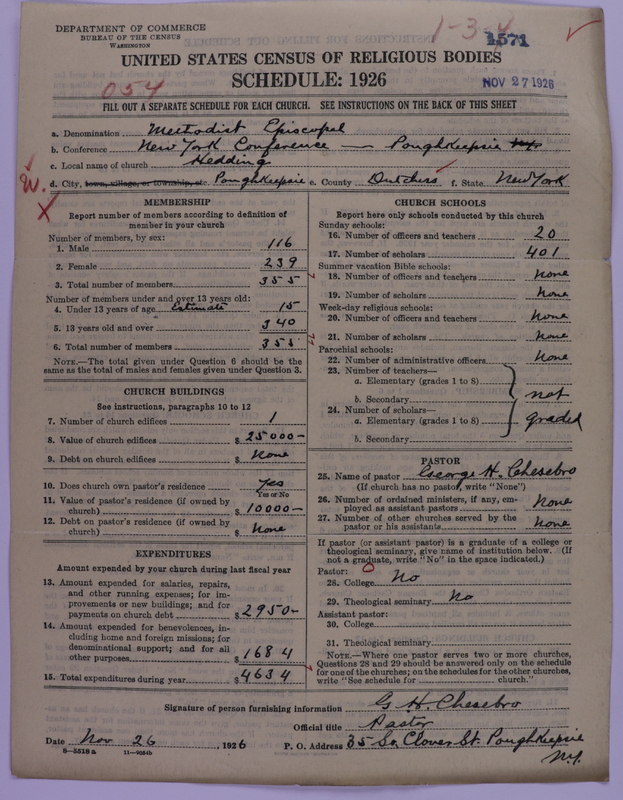 DEPARTMENT OF COMMERCE
BUREAU OF THE CENSUS
WASHINGTON
1-3-4
1571
UNITED STATES CENSUS OF RELIGIOUS BODIES
SCHEDULE: 1926
NOV 27 1926
054
FILL OUT A SEPARATE SCHEDULE FOR EACH CHURCH. SEE INSTRUCTIONS ON THE BACK OF THIS SHEET
a. Denomination Methodist Episcopal
b. Conference New York Conference — Poughkeepsie N.Y.
c. Local name of church Hedding
d. City, town, village, or township, etc. Poughkeepsie e. County Dutchess f. State New York
MEMBERSHIP
Report number of members according to definition of
member in your church
Number of members, by sex:
1. Male 116
2. Female 239
3. Total number of members 355
Number of members under and over 13 years old:
4. Under 13 years of age Estimate 15
5. 13 years old and over 340
6. Total number of members 355
NOTE.—The total given under Question 6 should be the
same as the total of males and females given under Question 3.
CHURCH BUILDINGS
See instructions, paragraphs 10 to 12
7. Number of church edifices 1
8. Value of church edifices $ 25000-
9. Debt on church edifices $ None
10. Does church own pastor's residence Yes
Yes or No
11. Value of pastor's residence (if owned by
church) $ 10000-
12. Debt on pastor's residence (if owned by
church) $ None
EXPENDITURES
Amount expended by your church during last fiscal year
13. Amount expended for salaries, repairs,
and other running expenses; for im-
provements or new buildings; and for
payments on church debt $ 2950-
14. Amount expended for benevolences, in-
cluding home and foreign missions; for
denominational support; and for all
other purposes $ 1684
15. Total expenditures during year $ 4634
CHURCH SCHOOLS
Report here only schools conducted by this church
Sunday schools:
16. Number of officers and teachers 20
17. Number of scholars 401
Summer vacation Bible schools:
18. Number of officers and teachers None
19. Number of scholars None
Week-day religious schools:
20. Number of officers and teachers None
21. Number of scholars None
Parochial schools:
22. Number of administrative officers None
23. Number of teachers—
a. Elementary (grades 1 to 8)
b. Secondary not
24. Number of scholars—
a. Elementary (grades 1 to 8) graded
b. Secondary
PASTOR
25. Name of pastor George H. Chesebro
(If church has no pastor, write "None")
26. Number of ordained ministers, if any, em-
ployed as assistant pastors None
27. Number of other churches served by the
pastor or his assistants None
If pastor (or assistant pastor) is a graduate of a college or
theological seminary, give name of institution below. (If
not a graduate, write "No" in the space indicated.)
Pastor:
28. College No
29. Theological seminary No
Assistant pastor:
30. College
31. Theological seminary
NOTE.—Where one pastor serves two or more churches,
Questions 28 and 29 should be answered only on the schedule
for one of the churches; on the schedules for the other churches,
write "See schedule for ............ church."
Signature of person furnishing information G H. Chesebro
Official title Pastor
Date Nov 26, 1926 P. O. Address 35 So. Clover St. Poughkeepsie
N.Y.
8-5518a 11-9054b